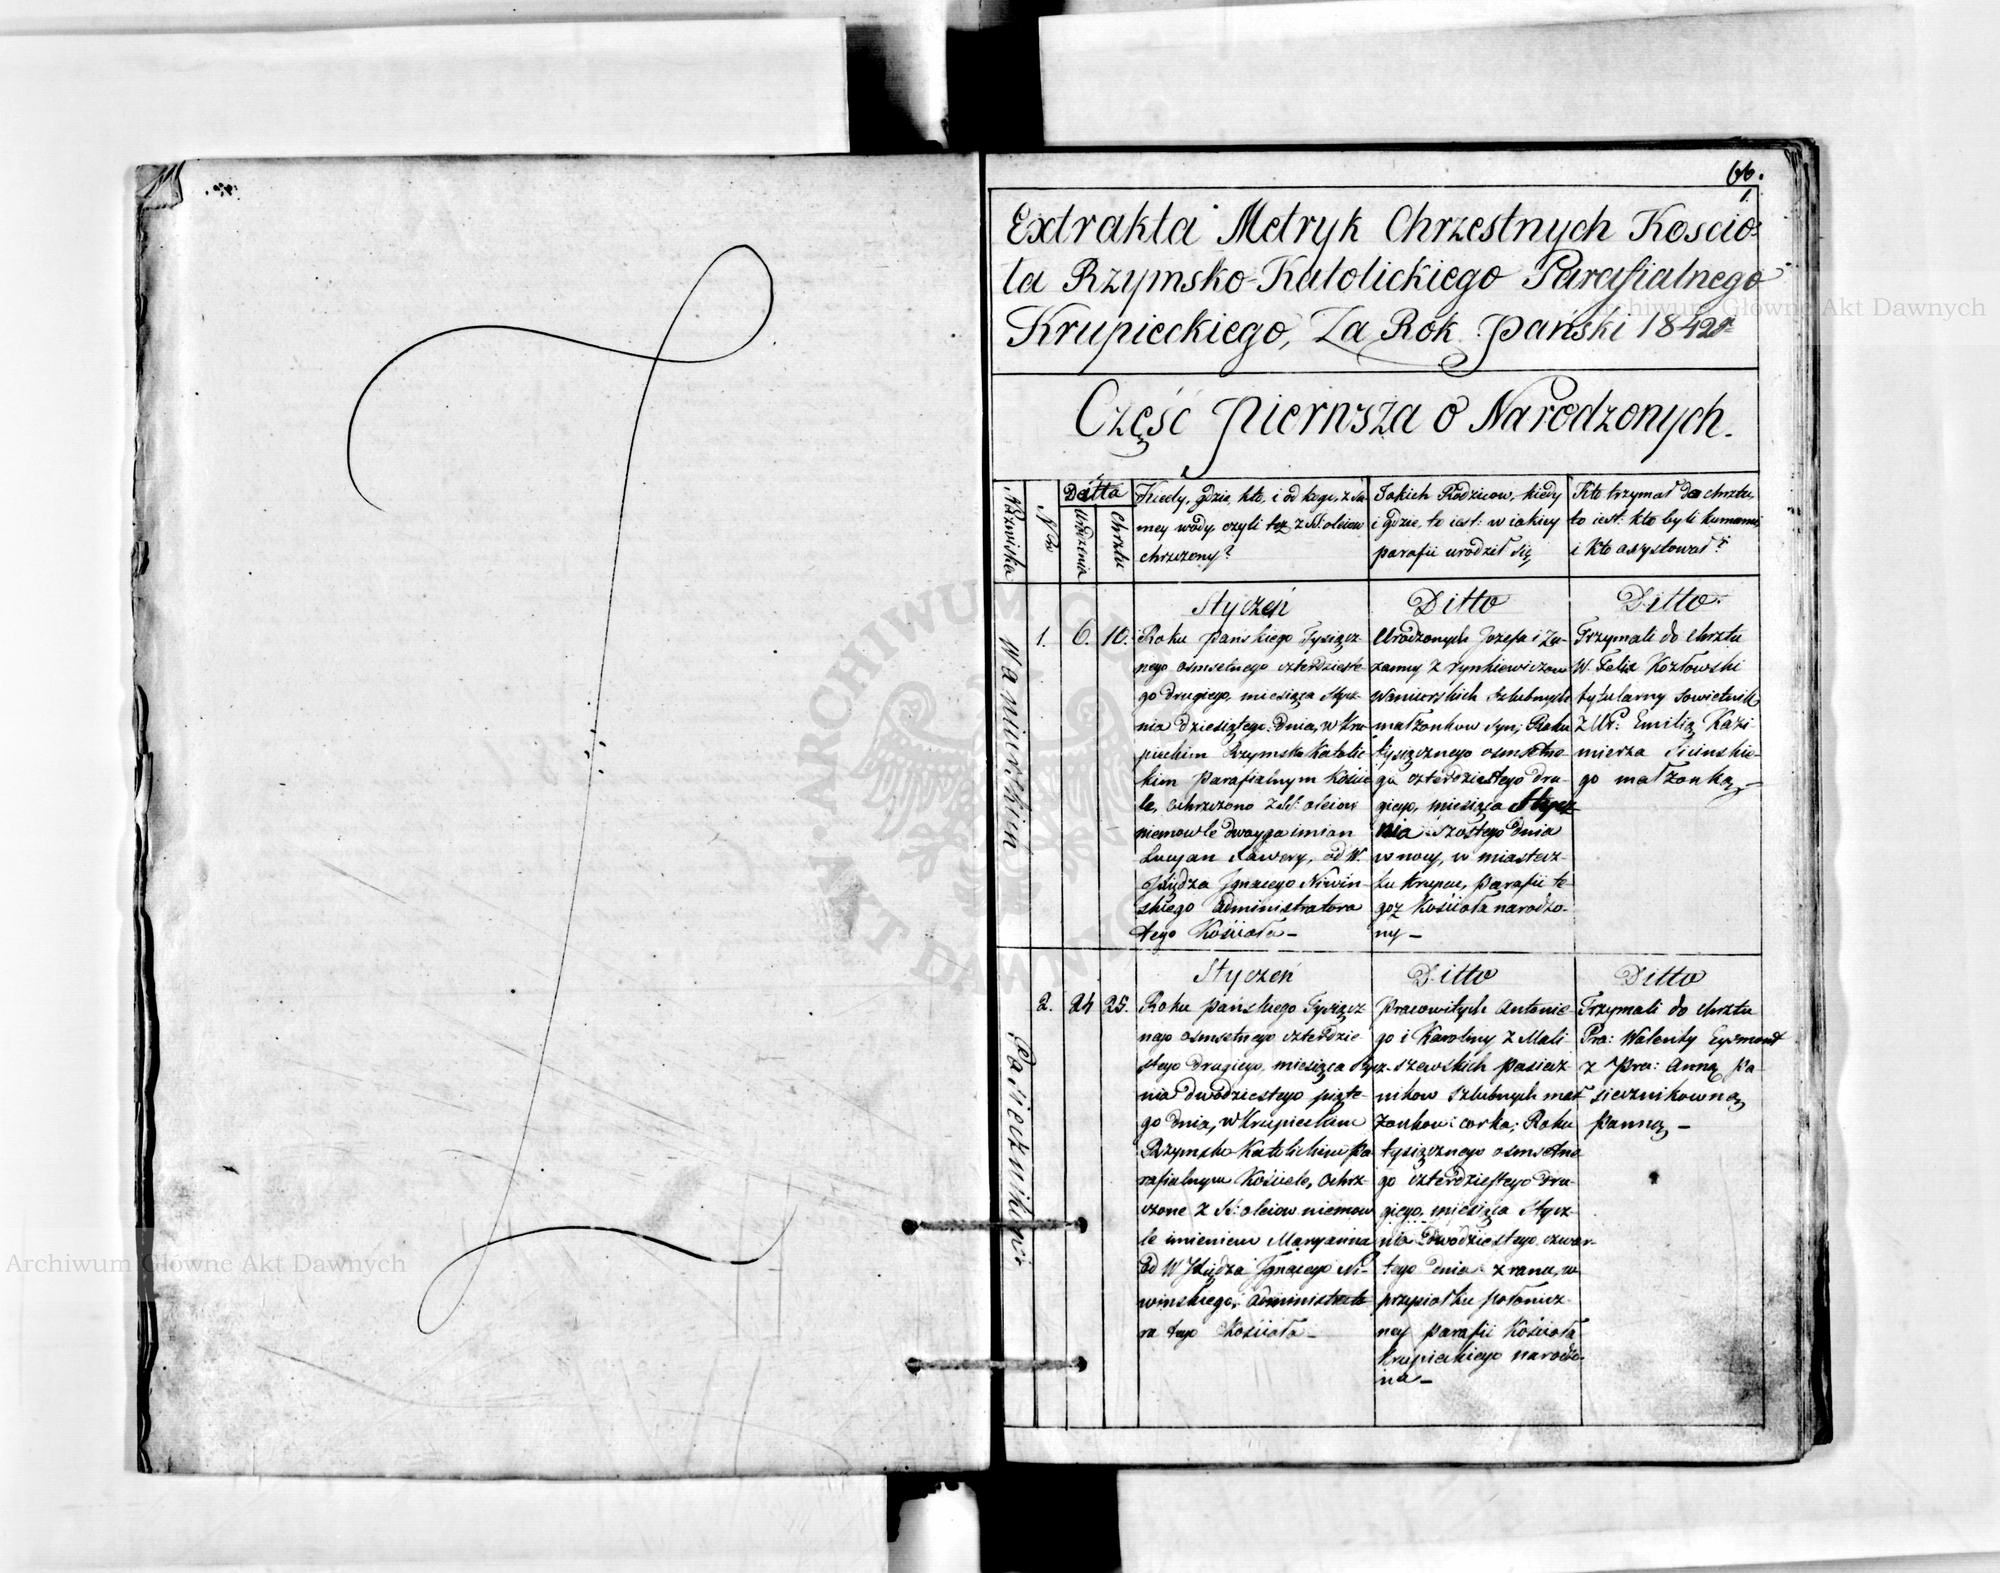 66.
1.
Extrakta Metryk Chrzestnych Kościo-
ła Rzymsko-Katolickiego Parafialnego
Krupieckiego, Za Rok Pański 1842gº
Część Pierwsza o Narodzonych.
Nazwiska
Nro
Datta
Urodzenia
Chrztu
Kiedy, gdzie, kto, i od kogo, z sa-
mey wody, czyli też z SS: oleiow
chrzczony?
Jakich Rodzicow, kiedy
i gdzie, to iest: w iakiey
parafii urodził się
Kto trzymał do chrztu,
to iest: kto byli kumami,
i kto asystował?
Waniurskim
1.
6.
10.
Styczeń
Roku Pańskiego Tysiącz-
nego osmsetnego czterdzieste-
go drugiego, miesiąca Stycz-
nia dziesiątego dnia, w Kru-
pieckim Rzymsko Katolic-
kim Parafialnym Koście-
le, ochrzczono z SS: oleiow
niemowle dwoyga imion
Lucyan Xawery, od W.
Xiędza Ignacego Niwin-
skiego administratora
tego Kościoła —
Ditto
Urodzonych Jozefa i Zu-
zanny z Rynkiewiczow
Waniurskich szlubnych
małżonkow syn; Roku
tysiącznego osmsetne-
go czterdziestego dru-
giego, miesiąca Stycz-
nia szostego dnia
w nocy, w miastecz-
ku Krupcu, parafii te-
goż Kościoła narodzo-
ny —
Ditto
Trzymali do chrztu
W. Felix Kozłowski
tytularny Sowietnik
z Ur: Emilią Kazi-
mierza Sicinskie-
go małżonką —
Pasiecznikowi
2.
24
25.
Styczeń
Roku Pańskiego Tysiącz-
nego osmsetnego czterdzie-
stego drugiego, miesiąca Stycz-
nia dwudziestego piąte-
go dnia, w Krupieckim
Rzymsko Katolickim Pa-
rafialnym Kościele, ochrz-
czone z SS: oleiow niemow-
le imieniem Maryanna
od W Xiędza Ignacego Ni-
winskiego, administrato-
ra tego Kościoła —
Ditto
Pracowitych Antonie-
go i Karoliny z Mali-
szewskich Pasiecz-
nikow szlubnych mał-
żonkow corka; Roku
tysiącznego osmsetne-
go czterdziestego dru-
giego, miesiąca Stycz-
nia dwudziestego czwar-
tego dnia z rana, w
przysiołku Połonicz-
ney parafii Kościoła
Krupieckiego narodzo-
na —
Ditto
Trzymali do chrztu
Pra: Walenty Eysmont
z Pra: Anną Pa-
siecznikowną
Panną —
Archiwum Główne Akt Dawnych
Archiwum Główne Akt Dawnych
ARCHIWUM GŁÓWNE AKT DAWNYCH